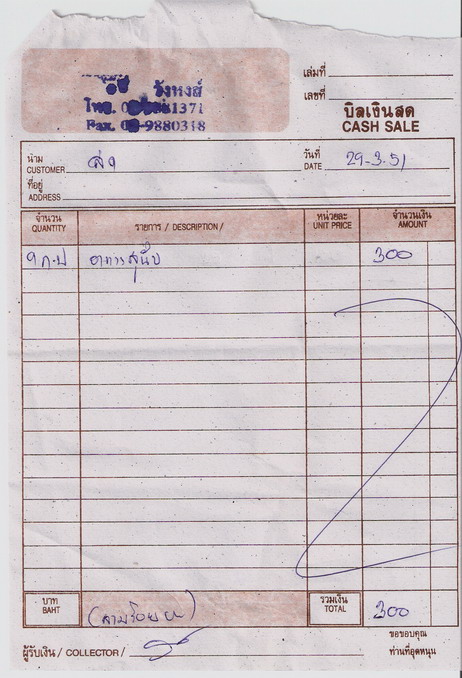 วังหงส์
โทร. 1371
Fax. 0 -9880318
เล่มที่
เลขที่
บิลเงินสด
CASH SALE
นาม
CUSTOMER
วันที่
DATE 29-3-51
ที่อยู่
ADDRESS
จำนวน รายการ / DESCRIPTION / หน่วยละ จำนวนเงิน
QUANTITY UNIT PRICE AMOUNT
อาหารสุนัข 300
บาท
BAHT
(สามร้อย
รวมเงิน
TOTAL 300
ผู้รับเงิน / COLLECTOR /
ขอขอบคุณ
ท่านที่อุดหนุน